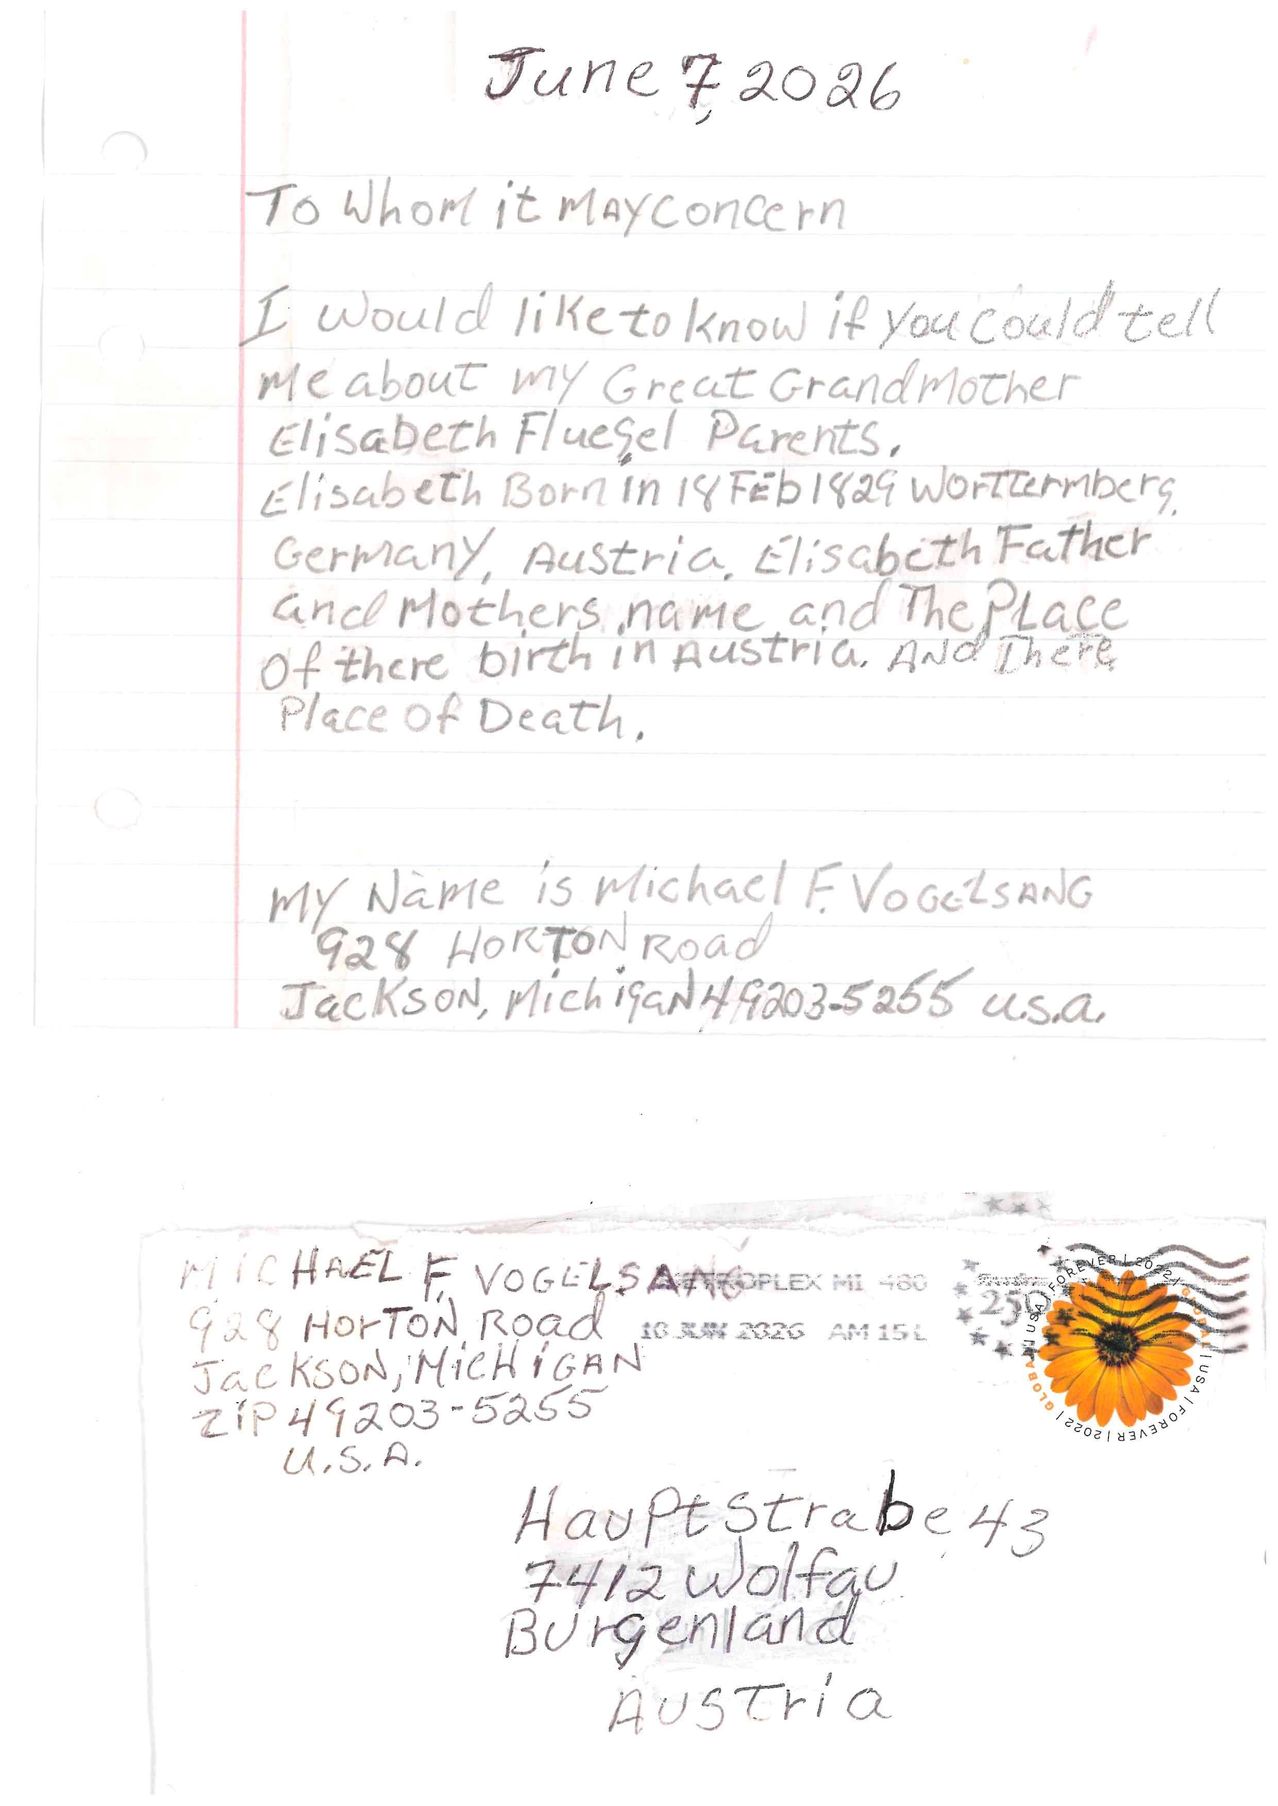 June 7, 2026
To Whom it MAY Concern
I would like to know if you could tell
Me about my Great GrandMother
Elisabeth Fluegel Parents.
Elisabeth Born in 18 FEb 1829 Worttermberg,
Germany, Austria. Elisabeth Father
and Mothers name and The PLace
Of there birth in Austria. And There
Place Of Death.
My Name is Michael F. VOGELSANG
928 HORTON Road
JacKSON, Michigan 49203-5255 U.S.a.
MICHAEL F. VOGELSANG
928 HorTON Road
JacKSON, MICHIGAN
ZiP 49203-5255
U.S.A.
METROPLEX MI 480
10 JUN 2026 AM 15 L
250
GLOBAL | USA | FOREVER | 2022 | GLOBAL | USA | FOREVER | 2022 |
HauPtStrabe 43
7412 Wolfau
Burgenland
AUSTria